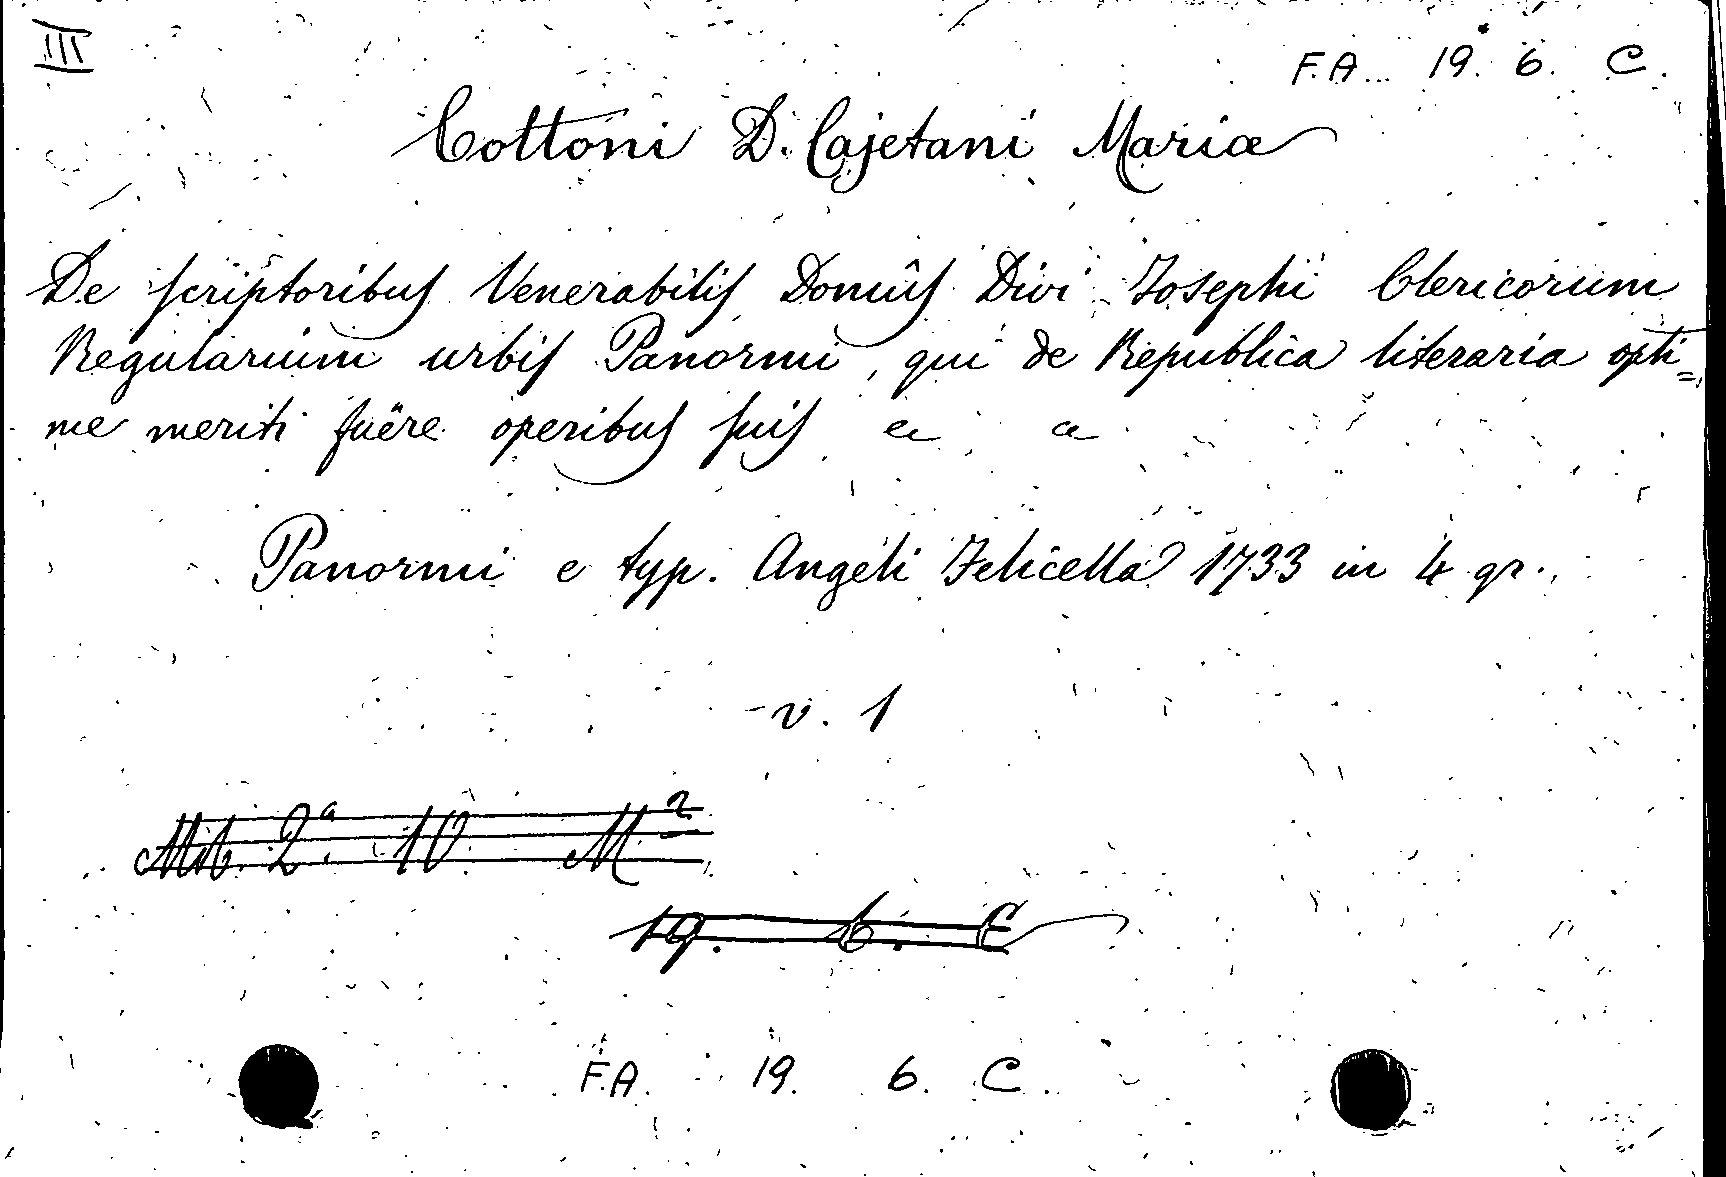 III
F.A. 19. 6. C.
Cottoni D. Cajetani Mariæ
De scriptoribus Venerabilis Domûs Divi Josephi Clericorum
Regularium urbis Panormi, qui de Republica literaria opti=
me meriti fuëre operibus suis
Panormi e typ. Angeli Felicella 1733 in 4 gr.
v. 1
2ª 10 M
19. 6. C
F.A. 19. 6. C.